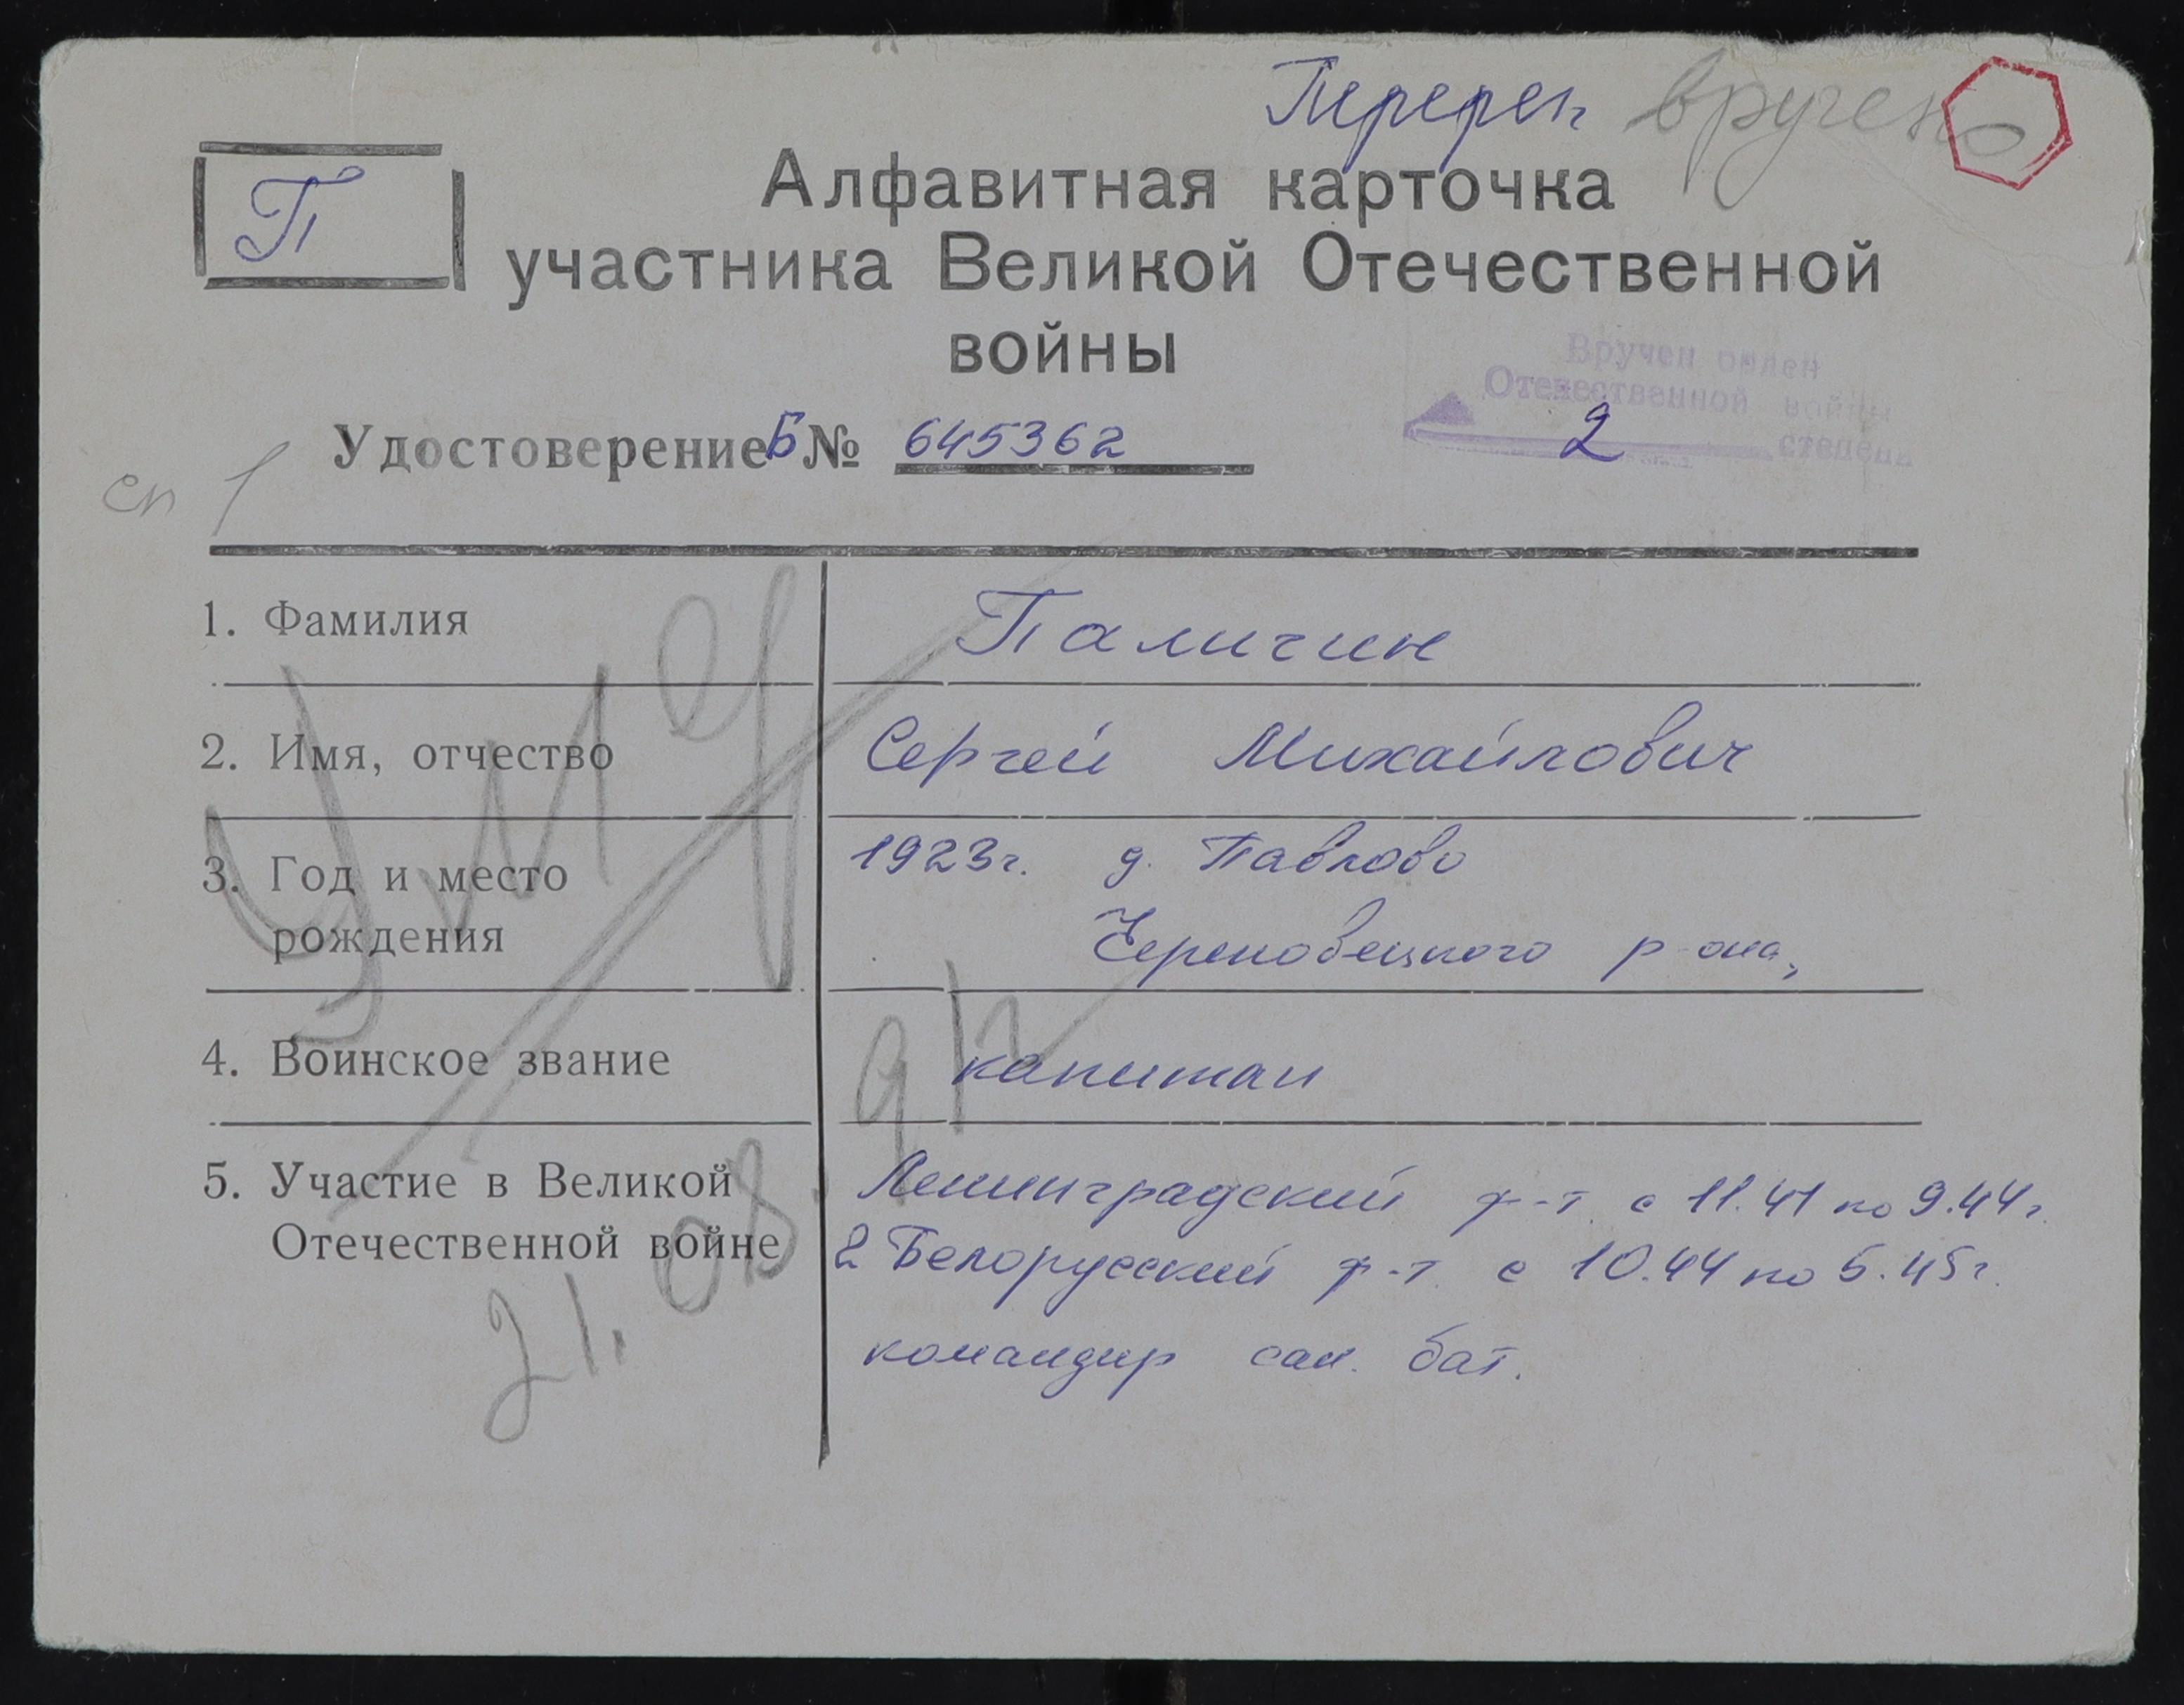 Перерег вручено
П
Алфавитная карточка
участника Великой Отечественной
войны
Вручен орден
Отечественной войны
2 степени
Удостоверение Б № 645362
сп 1
1. Фамилия Паличин
2. Имя, отчество Сергей Михайлович
3. Год и место 1923г. д. Павлово
рождения Череповецкого р-она,
4. Воинское звание капитан
5. Участие в Великой Ленинградский ф-т. с 11.41 по 9.44г.
Отечественной войне 2 Белорусский ф-т с 10.44 по 5.45г.
командир сан. бат.
Умер
21.08.91г